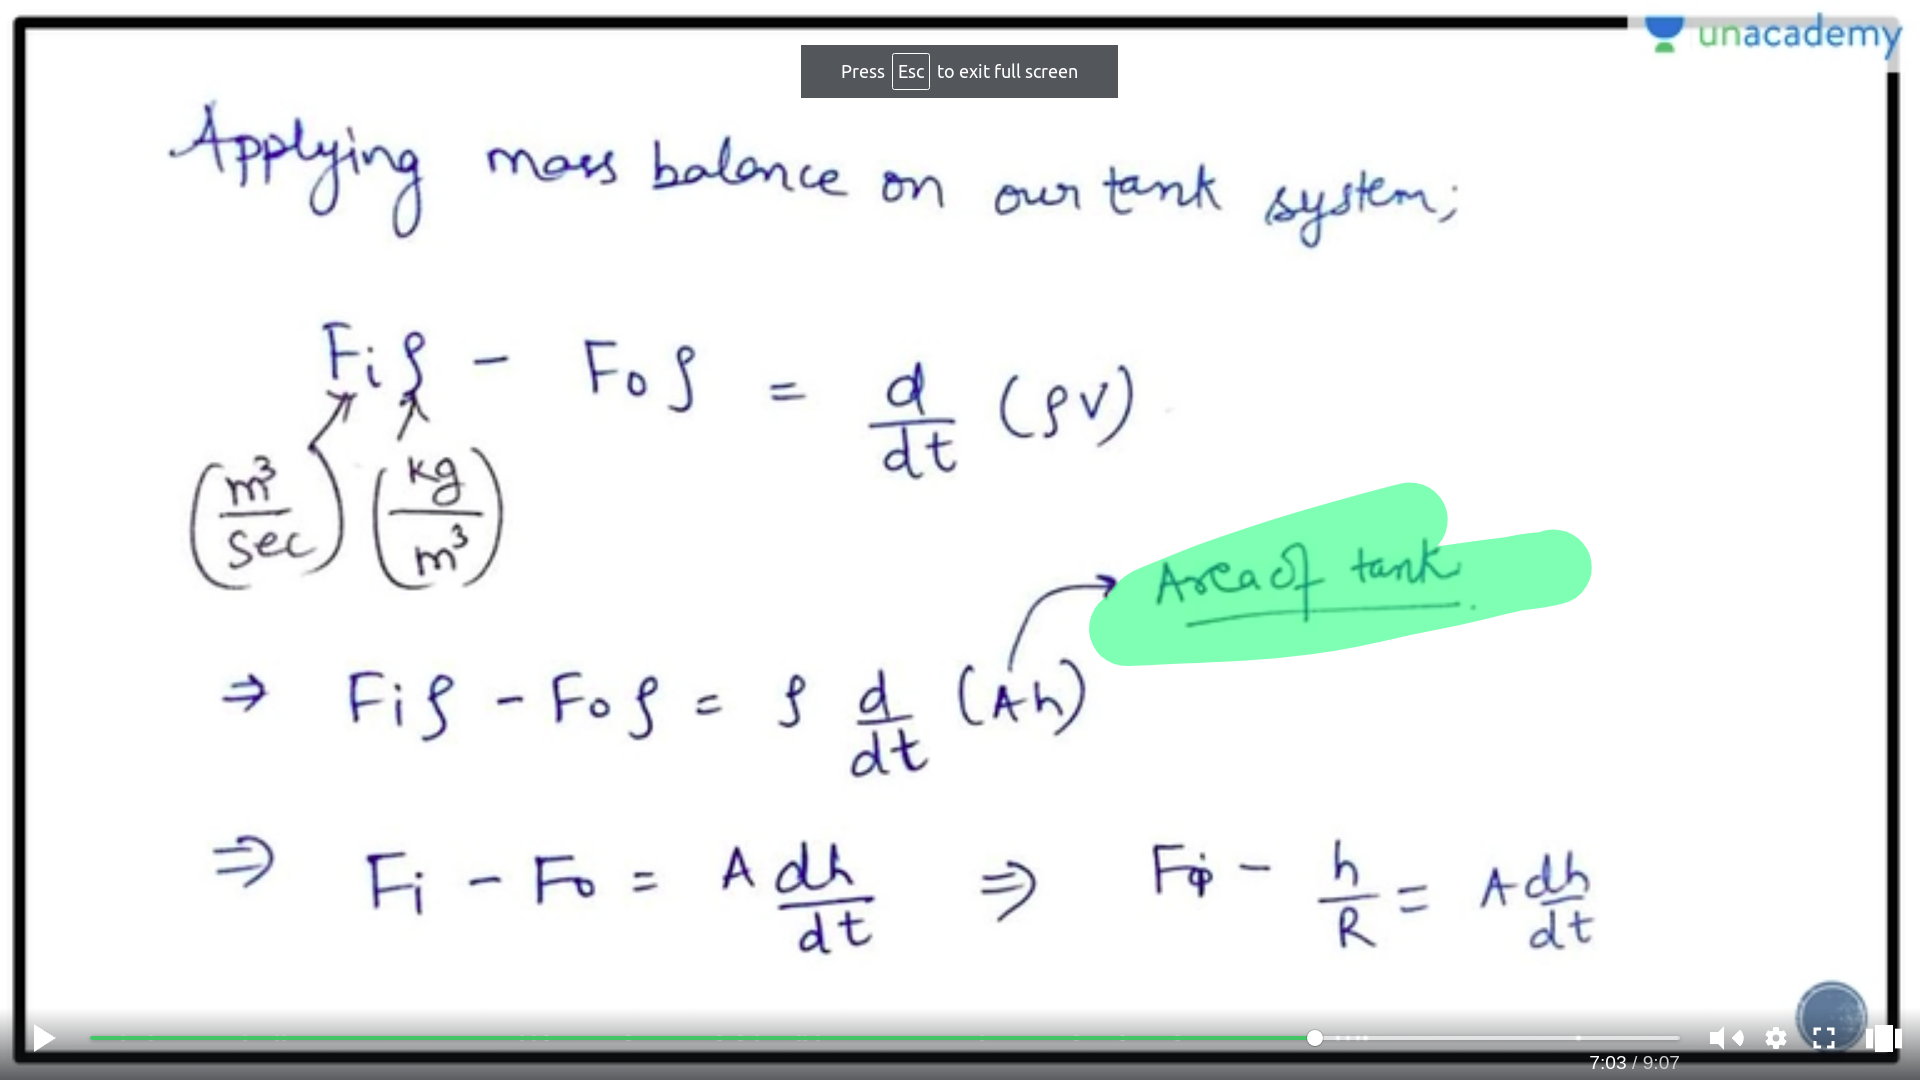 unacademy
Press Esc to exit full screen
Applying mass balance on our tank system;
Fiρ - Foρ = d/dt (ρV)
(m³/sec) (kg/m³)
Area of tank
⇒ Fiρ - Foρ = ρ d/dt (Ah)
⇒ Fi - Fo = A dh/dt ⇒ Fi - h/R = A dh/dt
7:03 / 9:07